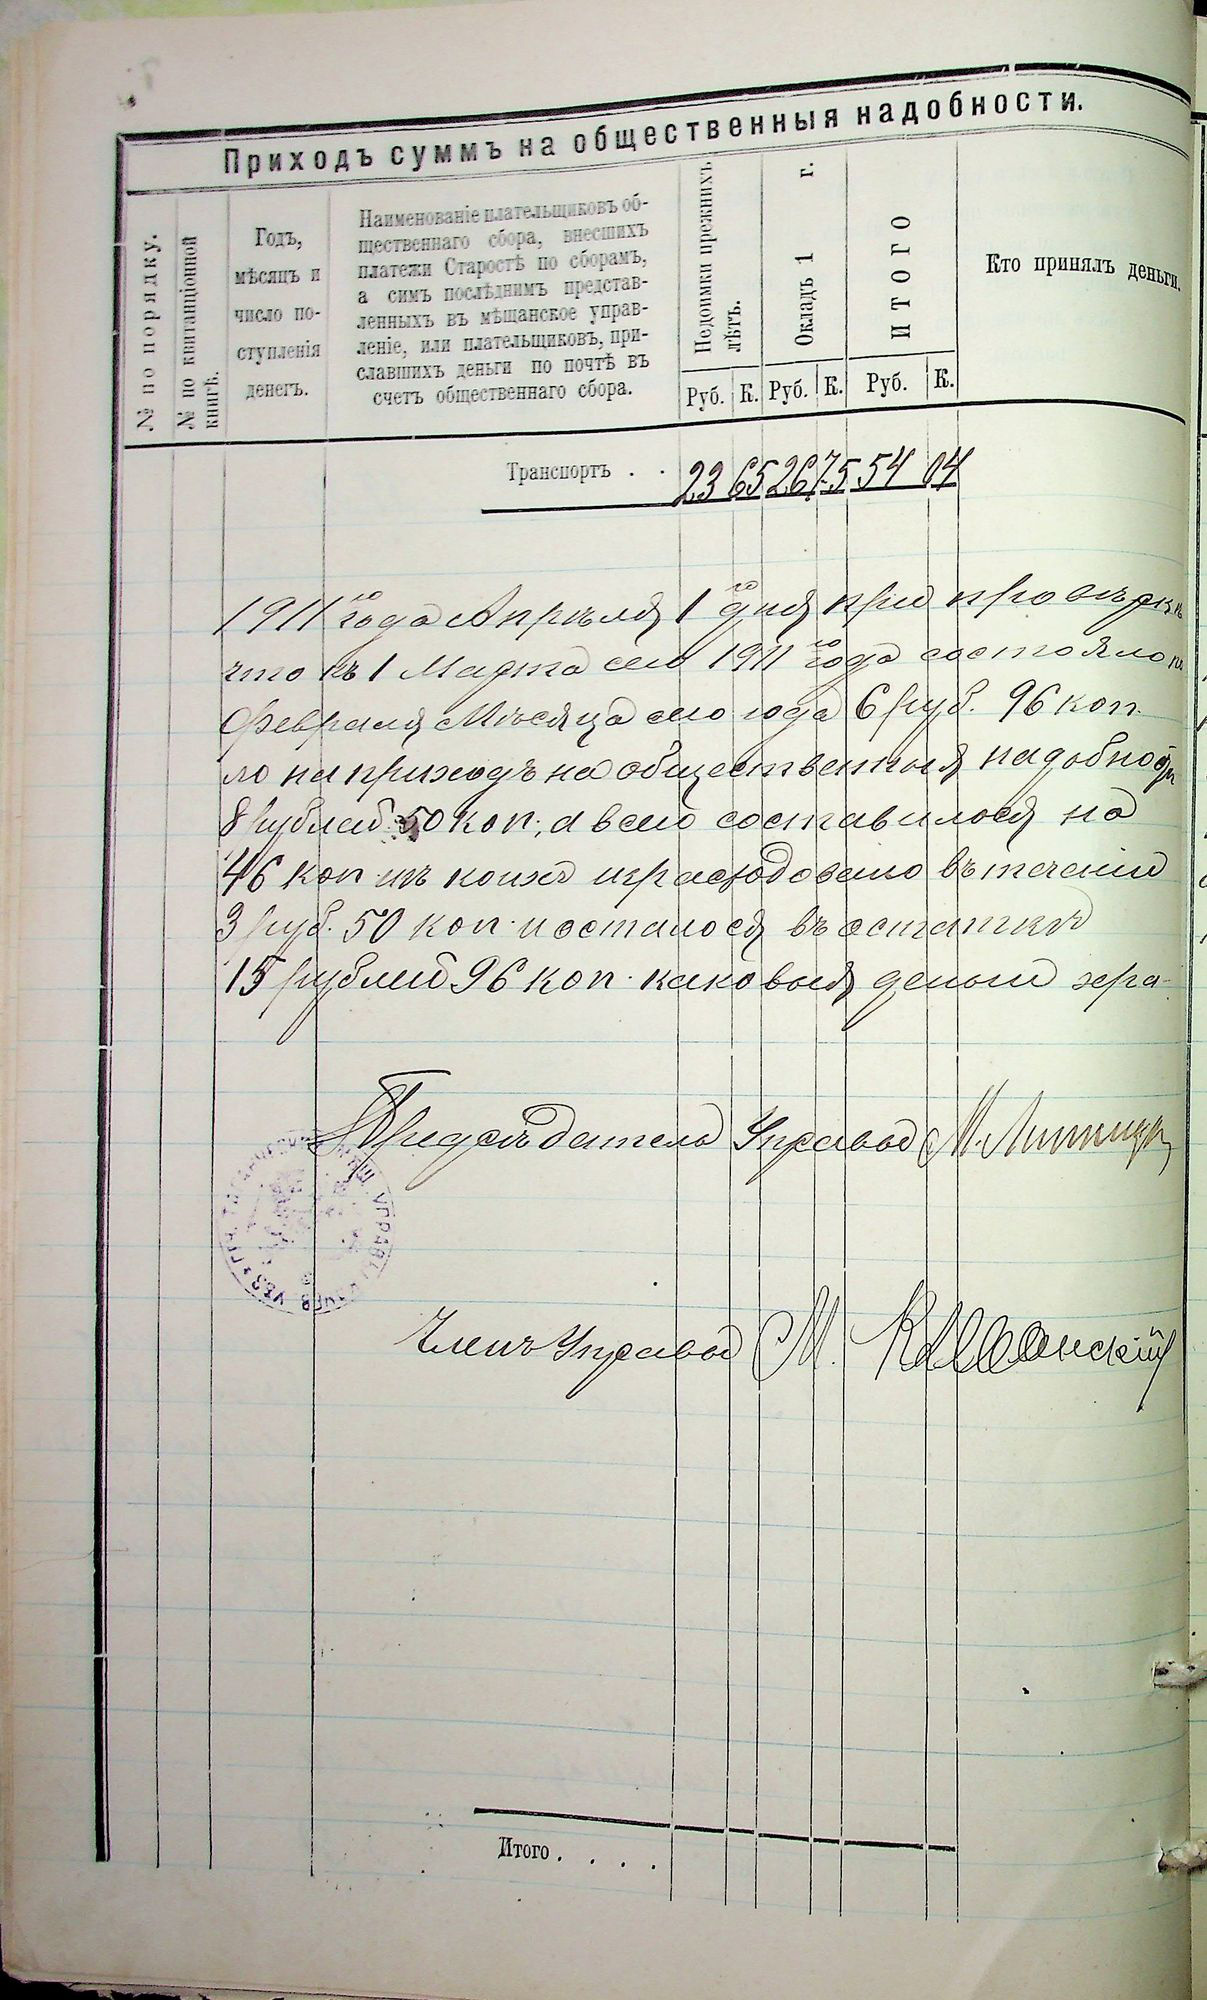 Приходъ суммъ на общественныя надобности.
№ по порядку.
№ по квитанціонной книгѣ.
Годъ,
мѣсяцъ и
число по-
ступленія
денегъ.
Наименованіе плательщиковъ об-
щественнаго сбора, внесшихъ
платежи Старостѣ по сборамъ,
а симъ послѣднимъ представ-
ленныхъ въ мѣщанское управ-
леніе, или плательщиковъ, при-
славшихъ деньги по почтѣ въ
счетъ общественнаго сбора.
Недоимки прежнихъ лѣтъ.
Окладъ 1 г.
ИТОГО
Кто принялъ деньги.
Руб. К. Руб. К. Руб. К.
Транспортъ . . 23 65 26 75 54 04
1911 го года Апрѣля 1 го дня при провѣркѣ
что къ 1 Марта сего 1911 го года состояло
Февраля Мѣсяца сего года 6 руб. 96 коп.
ло на приходъ на общественныя надобности
8 рублей 50 коп., а всего составилося на
46 коп изъ коихъ израсходовано въ теченіи
3 руб. 50 коп. и осталося въ остаткѣ
15 рублей 96 коп. каковыя деньги хра-
Предсѣдатель Управы М.
Членъ Управы М.
Итого . . . .